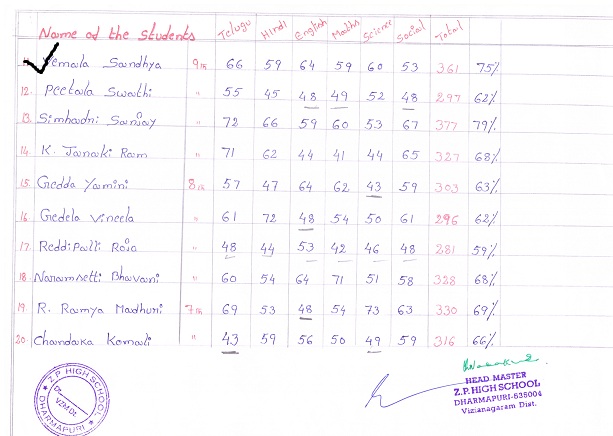 Name of the Students Telugu Hindi English Maths Science Social Total
Vemala Sandhya 9th 66 59 64 59 60 53 361 75%
12. Peetala Swathi " 55 45 48 49 52 48 297 62%
13. Simhadri Sanjay " 72 66 59 60 53 67 377 79%
14. K. Janaki Ram " 71 62 44 41 44 65 327 68%
15. Gedda Yamini 8th 57 47 64 62 43 59 303 63%
16. Gedela Vineela " 61 72 48 54 50 61 296 62%
17. Reddipalli Roja " 48 44 53 42 46 48 281 59%
18. Naramsetti Bhavani " 60 54 64 71 51 58 328 68%
19. R. Ramya Madhuri 7th 69 53 48 54 73 63 330 69%
20. Chandaka Komali " 43 59 56 50 49 59 316 66%
Z.P. HIGH SCHOOL
VZM Dt.
DHARMAPURI
HEAD MASTER
Z.P. HIGH SCHOOL
DHARMAPURI-535004
Vizianagaram Dist.